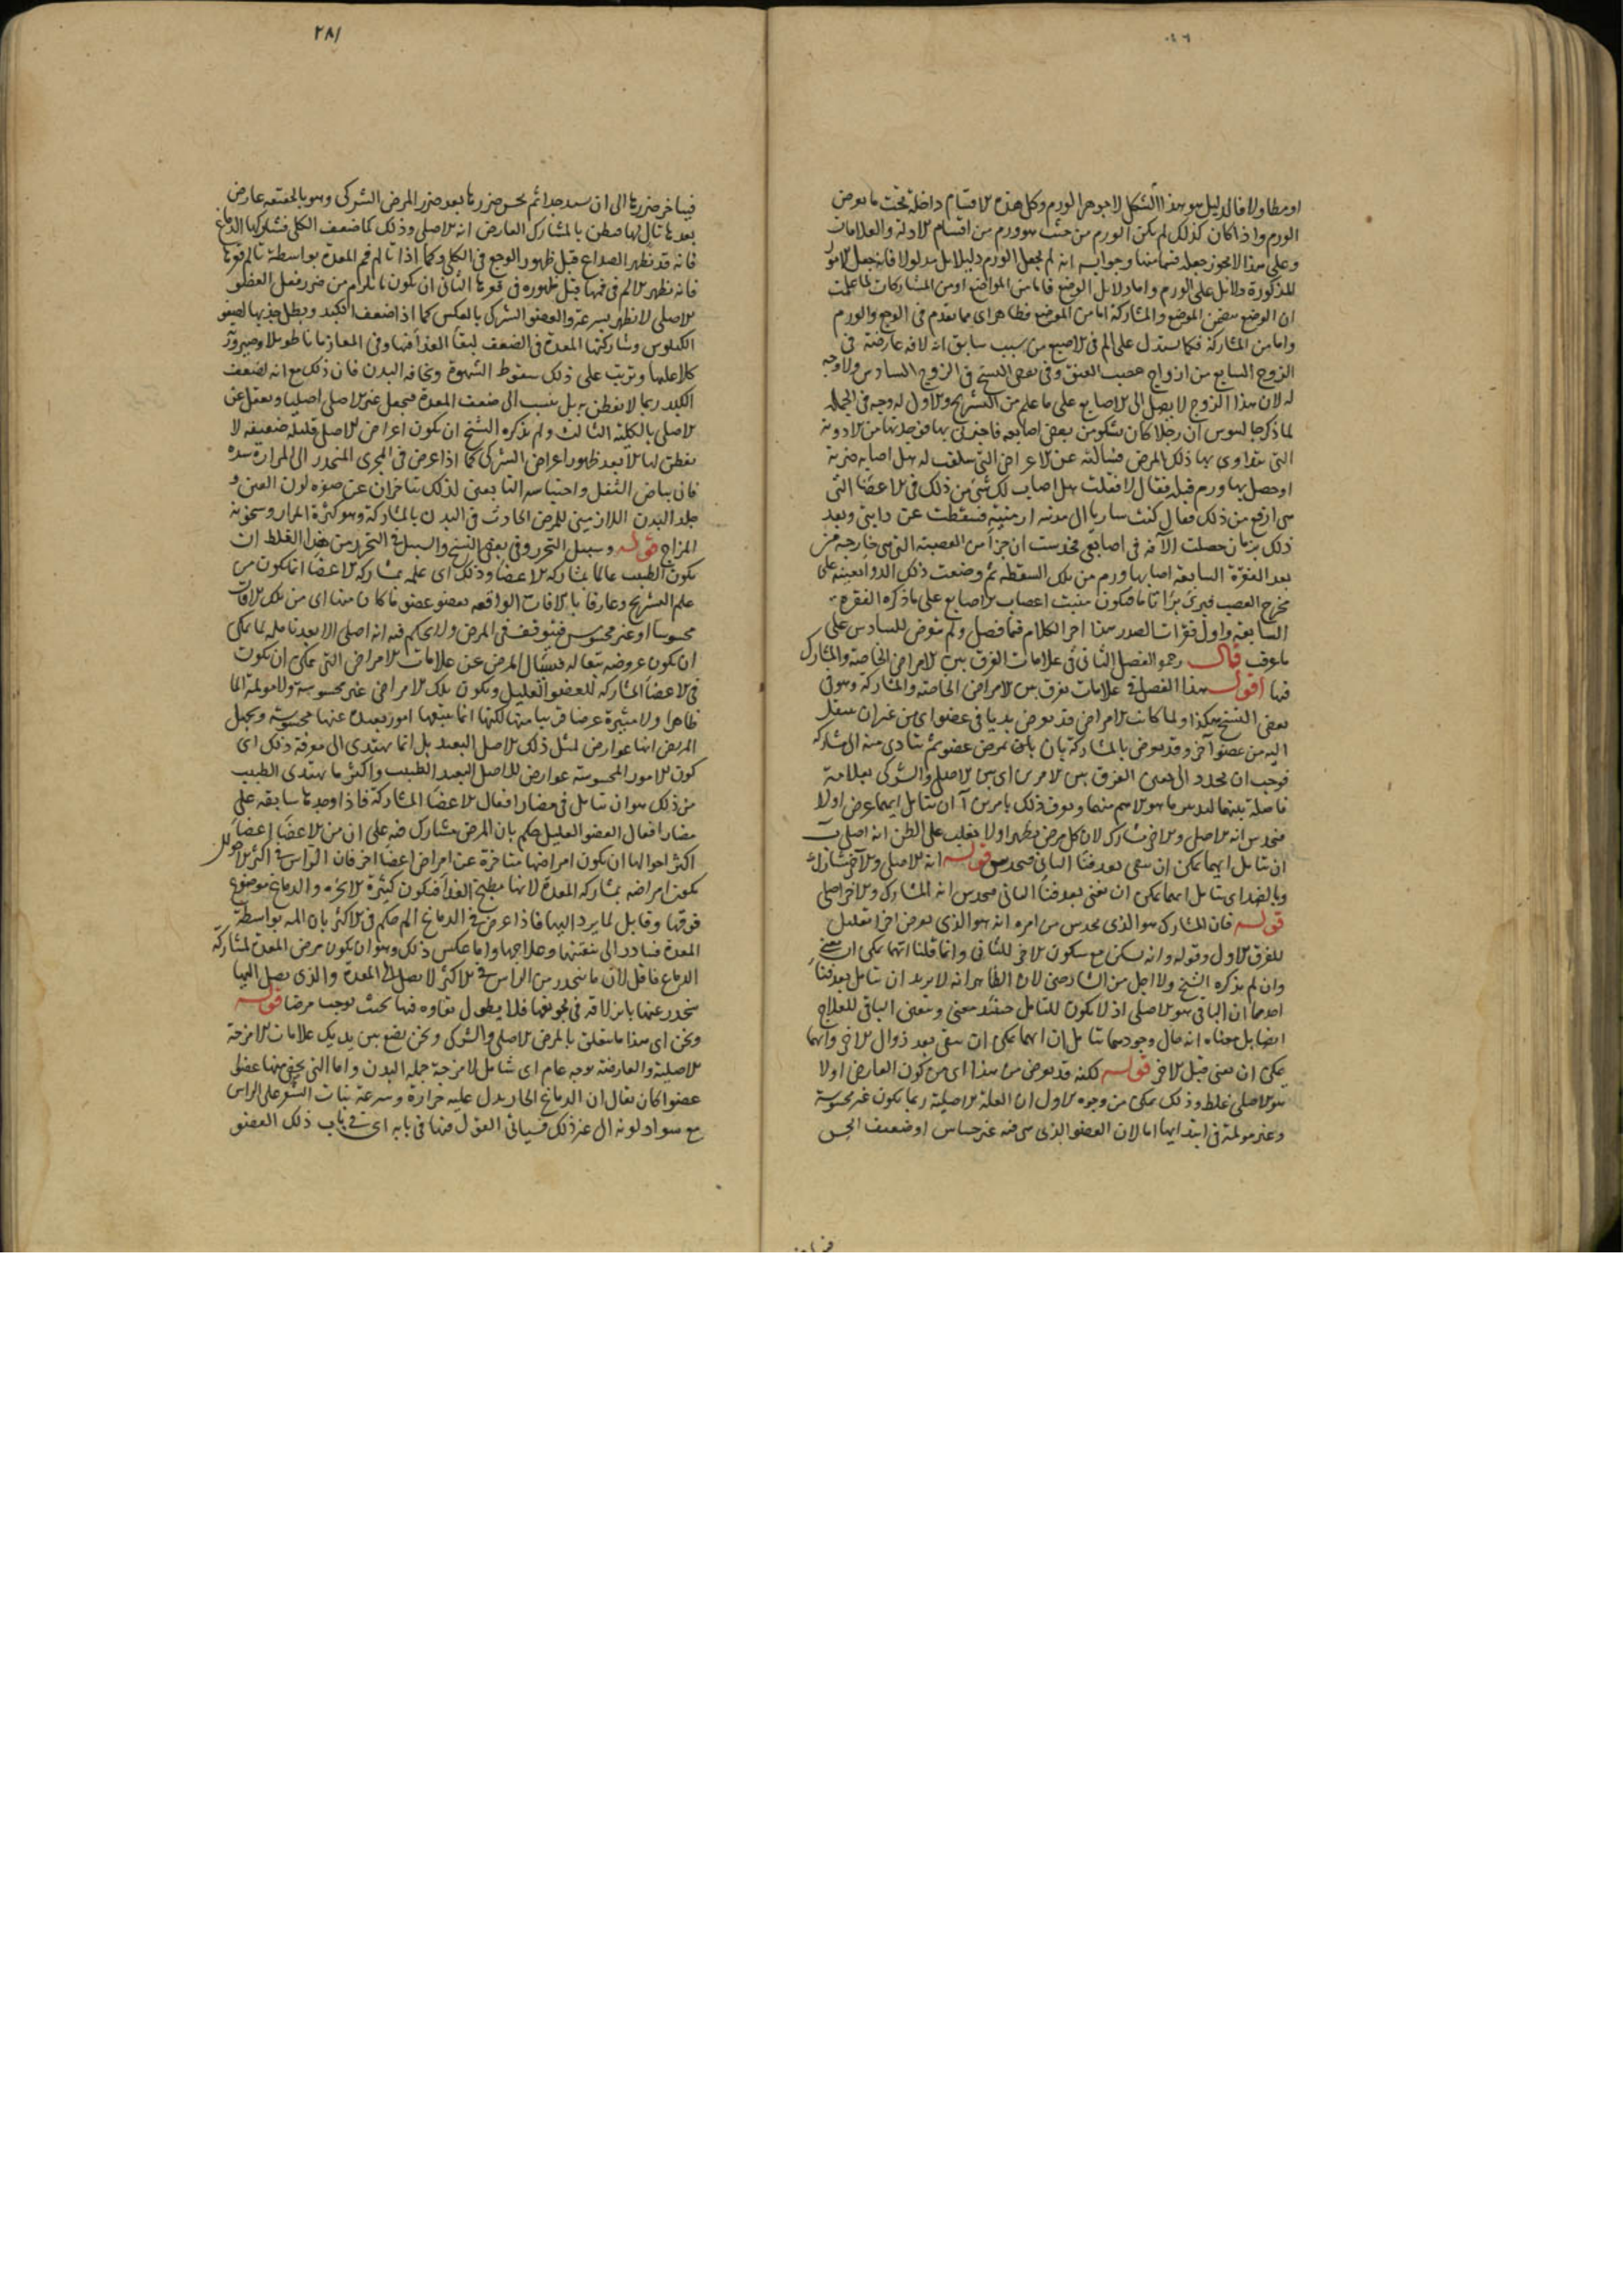 او مطاولا فالدليل هو هذا الشكل لا جوهر الورم وكل هذه الاقسام داخلة تحت ما يعرض
الورم واذا كان كذلك لم يكن الورم من حيث هو ورم من اقسام الادلة والعلامات
وعلى هذا لا يجوز جعله قسما منها وجوابه انه لم يجعل الورم دليلا بل مدلولا فانه جعل الامور
المذكورة دلائل على الورم واما دلائل الوضع فاما من المواضع او من المشاركات لما علمت
ان الوضع يتضمن الموضع والمشاركة اما من الموضع فظاهر اي مما تقدم في الوجع والورم
واما من المشاركة فكما يستدل على الم في الاصبع من سبب سابق انه لافة عارضة في
الزوج السابع من ازواج عصب العنق وفي بعض النسخ في الزوج السادس ولا وجه
له لان هذا الزوج لا يصل الى الاصابع على ما علم من التشريح والاول له وجه في الجملة
لما ذكر جالينوس ان رجلا كان يشكو من بعض اصابعه فاخبرني بها فوجدتها من الادوية
التي يتداوى بها ذلك المرض فسالته عن الاعراض التي سلفت له هل اصابه ضربة
او حصل بها ورم قبله فقال لا فقلت هل اصاب لك شيء من ذلك في الاعضا التي
هي ارفع من ذلك فقال كنت سايرا الى مدينة ارمنية فسقطت عن دابتي وبعد
ذلك بزمان حصلت الآفة في اصابعي فحدست ان جزأ من العصبة التي هي خارجة من
بعد الفقرة السابعة اصابها ورم من تلك السقطة ثم وضعت ذلك الدوا بعينه على
مخرج العصب فبرئ برأ تاما فيكون منبت اعصاب الاصابع على ما ذكره الفقرة
السابعة واول فقرات الصدر هذا اخر الكلام فيما فصل ولم يتعرض للسادس على
ما عرف قال رحمه الفصل الثاني في علامات الفرق بين الامراض الخاصة والمشارك
فيها اقول هذا الفصل في علامات يفرق بين الامراض الخاصة والمشاركة وهو في
بعض النسخ هكذا ولما كانت الامراض قد يعرض بديا في عضو اي من غير ان ينتقل
اليه من عضو آخر وقد يعرض بالمشاركة بان يكون يمرض عضو ثم يتادى منه الى مشاركه
فوجب ان نحدد الى معنى الفرق بين الامرين اي بين الاصلي والشركي بعلامة
فاصلة بينهما ليدرس ما هو الاسم منهما ويعرف ذلك بامرين آ ان يتامل ايهما عرض اولا
فيحدس انه الاصلي والاخر مشارك لان كل مرض يظهر اولا يغلب على الظن انه اصلي ب
ان يتامل ايهما يمكن ان يبقى بعد فنا الباني فيحدس قوله انه الاصلي والآخر مشارك
وبالضد اي يتامل ايهما يمكن ان يفنى بعد فنا الباني فيحدس انه المشارك والاخر اصلي
قوله فان المشارك هو الذي يحدس من امره انه هو الذي يعرض اخرا تعليل
للفرق الاول وقوله وانه يسكن مع سكون الاخر للثاني وانما قلنا انهما يمكن ان يبقى
وان لم يذكره الشيخ ولا اجل من الشارحين لان الظاهر انه لا يريد ان يتامل بعد فنا
احدهما ان الباقي هو الاصلي اذ لا يكون للتامل حينئذ معنى ويتعين الباقي للعلاج
ايضا بل معناه انه حال وجودهما يتامل ان ايهما يمكن ان يبقى بعد زوال الاخر وايهما
يمكن ان يفنى قبل الاخر قوله لكنه قد يعرض من هذا اي من كون العارض اولا
هو الاصلي غلط وذلك يمكن من وجوه الاول ان العلة الاصلية ربما يكون غير محسوسة
وغير مولمة في ابتدايها اما لان العضو الذي هي فيه غير حساس او ضعيف الحس
٢٨١
فيتاخر ضررها الى ان يستد جدا ثم يحس ضررها بعد ضرر المرض الشركي وهو بالحقيقة عارض
بعدها تال لها فيظن بالمشارك العارض انه الاصلي وذلك كما ضعف الكلى فشاركها الدماغ
فانه قد يظهر الصداع قبل ظهور الوجع في الكلى وكما اذا تالم فم المعدة بواسطة تالم قعرها
فانه يظهر الالم في فمها قبل ظهوره في قعرها الثاني ان يكون ما يلزم من ضرر فعل العضو
الاصلي لا يظهر بسرعة والعضو الشركي بالعكس كما اذا ضعف الكبد وبطل جذبها لصفو
الكيلوس وشاركتها المعدة في الضعف لبقا الغذا فيها وفي المعا زمانا طويلا وصيرورته
كلا عليها وترتب على ذلك سقوط الشهوة ونحافة البدن فان ذلك مع انه لضعف
الكبد ربما لا يفطن به بل ينسب الى ضعف المعدة فيجعل غير الاصلي اصليا ويغفل عن
الاصلي بالكلية الثالث ولم يذكره الشيخ ان يكون اعراض الاصل قليلة ضعيفة لا
يفطن لها الا بعد ظهور اعراض الشركي كما اذا عرض في المجرى المنحدر الى المرارة سدة
فان بياض الثفل واحتباسه التابعين لذلك يتاخران عن صفرة لون العين و
جلد البدن اللازمين للمرض الحادث في البدن بالمشاركة وهو كثرة المرار وسخونة
المزاج قوله وسبيل التحرز وفي بعض النسخ والسبيل في التحرز من هذا الغلط ان
يكون الطبيب عالما بمشاركة الاعضا وذلك اي علمه بمشاركة الاعضا انما يكون من
علم التشريح وعارفا بالافات الواقعة بعضو عضو ما كان منها اي من تلك الافات
محسوسا او غير محسوس فيتوقف في المرض ولا يحكم فيه انه اصلي الا بعد تامله لما يمكن
ان يكون عروضه تبعا له فيسال المريض عن علامات الامراض التي يمكن ان يكون
في الاعضا المشاركة للعضو العليل ويكون تلك الامراض غير محسوسة ولا مولمة الما
ظاهرا ولا مثيرة عرضا قريبا منها لكنها انما يتبعها امور بعيدة عنها محسوسة ويجهل
المريض انها عوارض لمثل ذلك الاصل البعيد بل انما يهتدي الى معرفة ذلك اي
كون الامور المحسوسة عوارض للاصل البعيد الطبيب واكثر ما يهتدي الطبيب
من ذلك هو ان يتامل في مضار افعال الاعضا المشاركة فاذا وجدها سابقة على
مضار افعال العضو العليل حكم بان المرض مشارك فيه على ان من الاعضا اعضا
اكثر احوالها ان يكون امراضها متاخرة عن امراض اعضا اخر فان الراس في اكثر الاحوال
يكون امراضه بمشاركة المعدة لانها مطبخ الغذا فيكون كثيرة الابخرة والدماغ موضوع
فوقها وقابل لما يرد اليها فاذا عرض في الدماغ الم حكم في الاكثر بان المه بواسطة
المعدة فيبادر الى تنقيتها وعلاجها واما عكس ذلك وهو ان يكون مرض المعدة لمشاركة
الدماغ فاقل لان ما ينحدر من الراس في الاكثر لا يصل الى المعدة والذي يصل اليها
ينحدر عنها بانزلاقه في تجويفها فلا يطول بقاوه فيها بحيث يوجب مرضا قوله
ونحن اي هذا ما يتعلق بالمرض الاصلي والشركي ونحن نضع بين يديك علامات الامزجة
الاصلية والعارضة بوجه عام اي شامل لامزجة جملة البدن واما التي يخص منها عضوا
عضوا كان يقال ان الدماغ الحار يدل عليه حرارة وسرعة نبات الشعر على الراس
مع سواد لونه الى غير ذلك فسياتي القول فيها في بابه اي في باب ذلك العضو